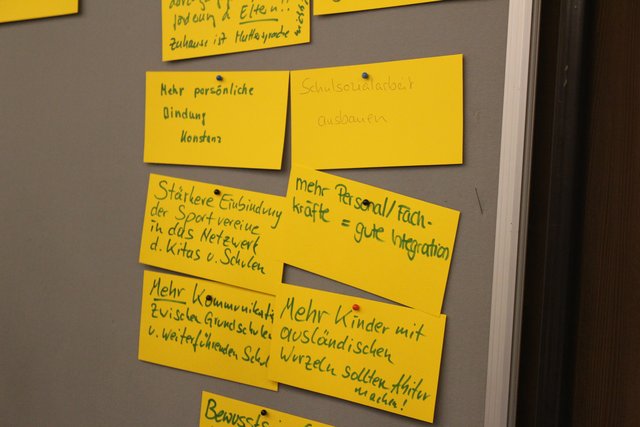 förderung d. Eltern!!
Zuhause ist Muttersprache
Mehr persönliche
Bindung
Konstanz
Schulsozialarbeit
ausbauen
Stärkere Einbindung
der Sportvereine
in das Netzwerk
d. Kitas u. Schulen
mehr Personal/Fach-
kräfte = gute Integration
Mehr Kommunikati
zwischen Grundschulen
u. weiterführenden Schul
Mehr Kinder mit
ausländischen
Wurzeln sollten Abitur
machen!